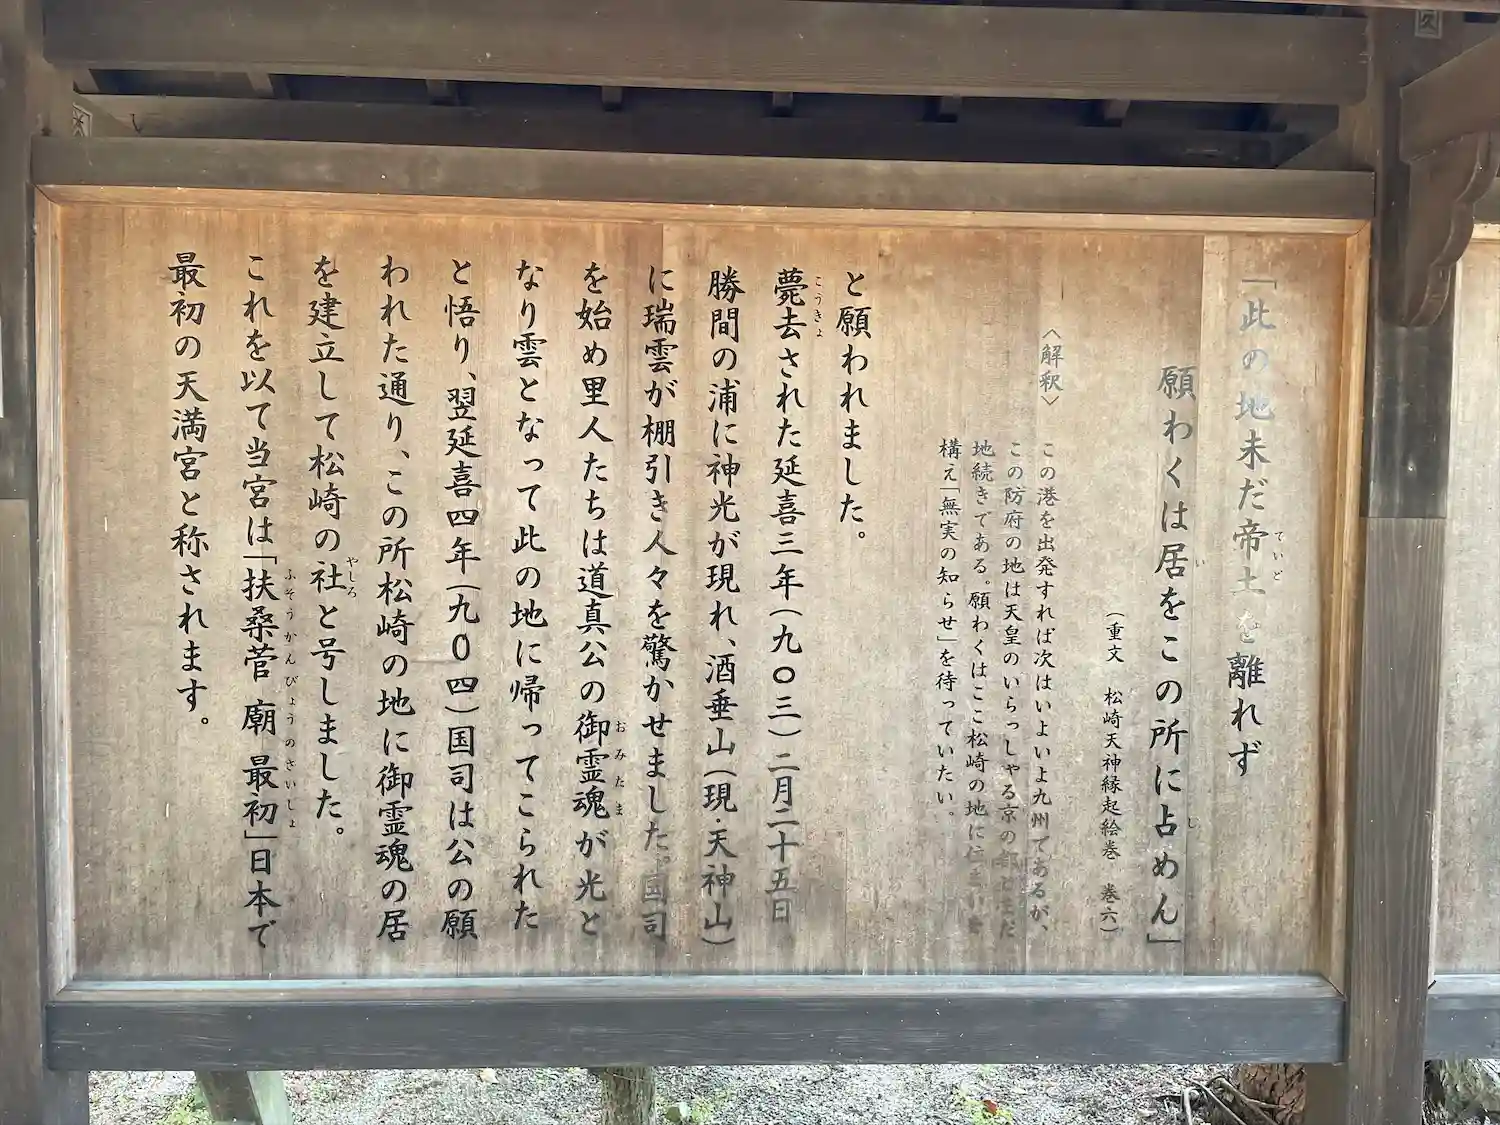 「此の地未だ帝土を離れず
願わくは居をこの所に占めん」
(重文 松崎天神縁起絵巻 巻六)
〈解釈〉
この港を出発すれば次はいよいよ九州であるが、
この防府の地は天皇のいらっしゃる京の都とまだ
地続きである。願わくはここ松崎の地に住まいを
構え「無実の知らせ」を待っていたい。
と願われました。
薨去された延喜三年(九〇三)二月二十五日
勝間の浦に神光が現れ、酒垂山(現・天神山)
に瑞雲が棚引き人々を驚かせました。国司
を始め里人たちは道真公の御霊魂が光と
なり雲となって此の地に帰ってこられた
と悟り、翌延喜四年(九〇四)国司は公の願
われた通り、この所松崎の地に御霊魂の居
を建立して松崎の社と号しました。
これを以て当宮は「扶桑菅廟最初」日本で
最初の天満宮と称されます。
ていど
い
し
こうきょ
おみたま
やしろ
ふそうかんびょうのさいしょ